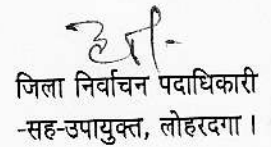 जिला निर्वाचन पदाधिकारी
-सह-उपायुक्त, लोहरदगा ।